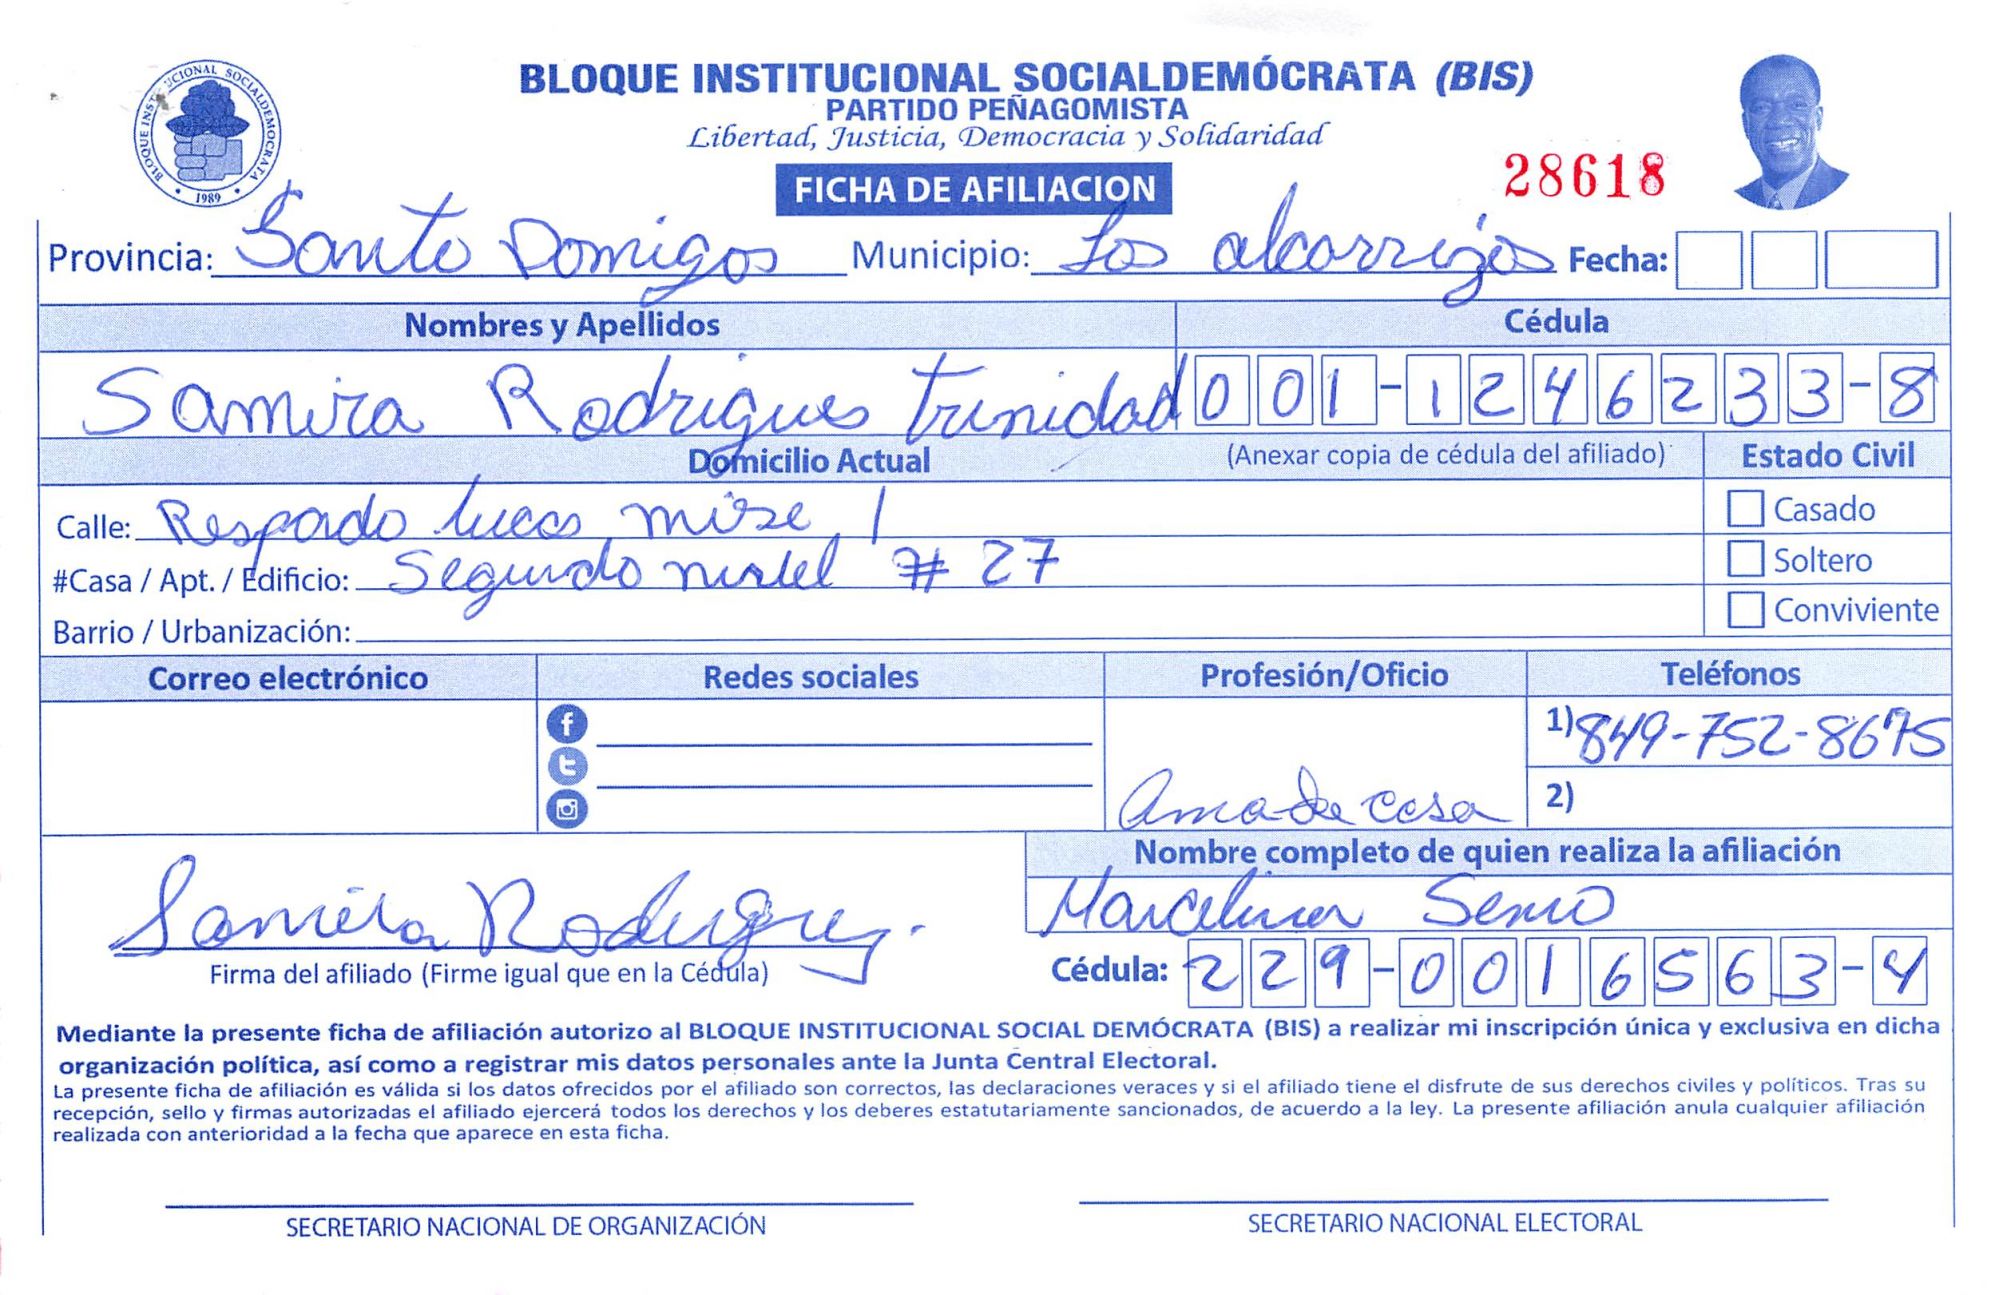 BLOQUE INSTITUCIONAL SOCIALDEMÓCRATA (BIS)
PARTIDO PEÑAGOMISTA
Libertad, Justicia, Democracia y Solidaridad
BLOQUE INSTITUCIONAL SOCIALDEMOCRATA
1989
FICHA DE AFILIACION
28618
Provincia: Santo Domigos Municipio: Los alcarrizos Fecha:
Nombres y Apellidos Cédula
Samira Rodrigues trinidad 001-1246233-8
Domicilio Actual (Anexar copia de cédula del afiliado) Estado Civil
Calle: Respardo lucas 1
Casado
#Casa / Apt. / Edificio: Segundo # 27
Soltero
Barrio / Urbanización:
Conviviente
Correo electrónico Redes sociales Profesión/Oficio Teléfonos
1) 849-752-8675
Ama de casa 2)
Nombre completo de quien realiza la afiliación
Samira Rodriguez. Marcelina
Firma del afiliado (Firme igual que en la Cédula) Cédula: 229-0016563-4
Mediante la presente ficha de afiliación autorizo al BLOQUE INSTITUCIONAL SOCIAL DEMÓCRATA (BIS) a realizar mi inscripción única y exclusiva en dicha
organización política, así como a registrar mis datos personales ante la Junta Central Electoral.
La presente ficha de afiliación es válida si los datos ofrecidos por el afiliado son correctos, las declaraciones veraces y si el afiliado tiene el disfrute de sus derechos civiles y políticos. Tras su
recepción, sello y firmas autorizadas el afiliado ejercerá todos los derechos y los deberes estatutariamente sancionados, de acuerdo a la ley. La presente afiliación anula cualquier afiliación
realizada con anterioridad a la fecha que aparece en esta ficha.
SECRETARIO NACIONAL DE ORGANIZACIÓN SECRETARIO NACIONAL ELECTORAL